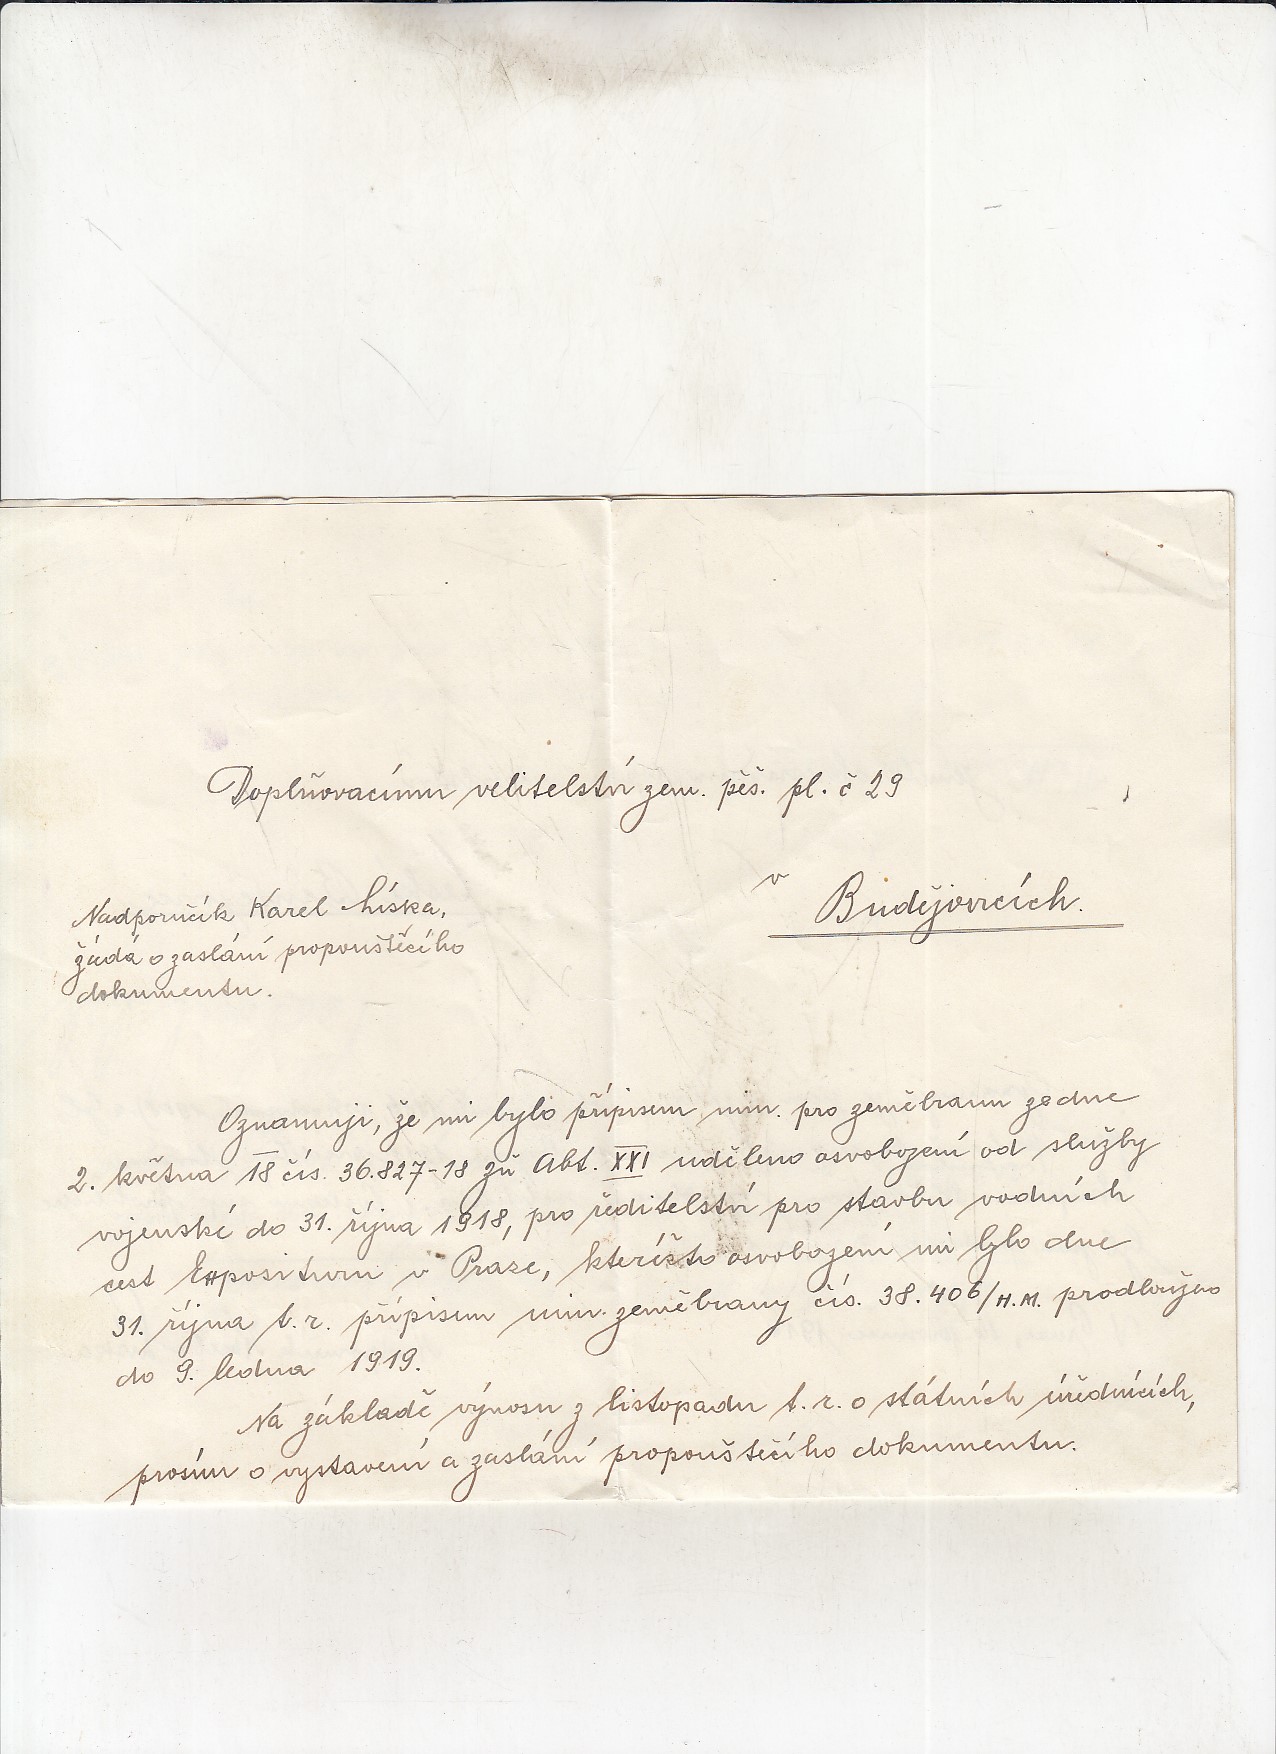 Doplňovacímu velitelství zem. pěš. pl. č 29
v Budějovicích.
Nadporučík Karel Líska,
žádá o zaslání propouštěcího
dokumentu.
Oznamuji, že mi bylo přípisem min. pro zeměbranu ze dne
2. května 18 čís. 36.827-18 zu Abt. XXI uděleno osvobození od služby
vojenské do 31. října 1918, pro ředitelství pro stavbu vodních
cest Expositura v Praze, kteréžto osvobození mi bylo dne
31. října t. r. přípisem min. zeměbrany čís. 38.406/H.M. prodlouženo
do 9. ledna 1919.
Na základě výnosu z listopadu t. r. o státních úřednících,
prosím o vystavení a zaslání propouštěcího dokumentu.